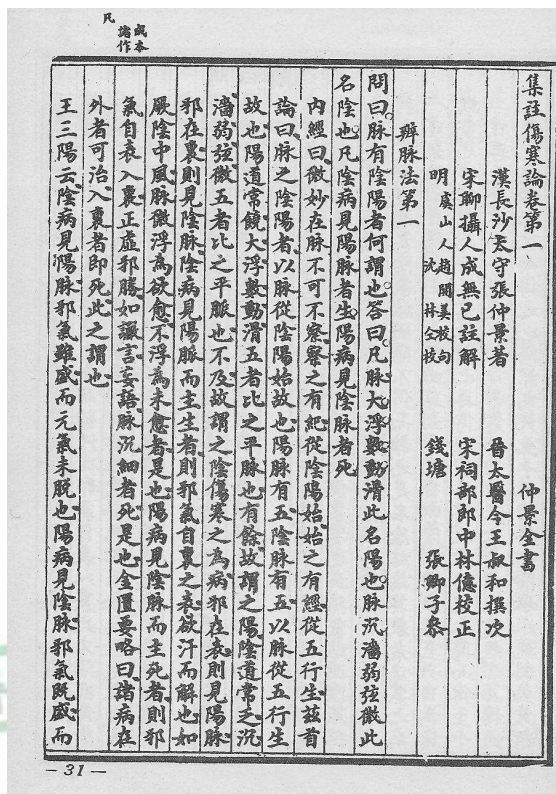 成本
諸作
凡
集註傷寒論卷第一 仲景全書
漢長沙太守張仲景著 晉太醫令王叔和撰次
宋聊攝人成無已註解 宋祠部郎中林億校正
明 虞山人趙開美校句
沈 林仝校 錢塘 張卿子叅
辨脉法第一
問曰脉有陰陽者何謂也答曰凡脉大浮數動滑此名陽也脉沉濇弱弦微此
名陰也凡陰病見陽脉者生陽病見陰脉者死
內經曰微妙在脉不可不察察之有紀從陰陽始始之有經從五行生茲首
論曰脉之陰陽者以脉從陰陽始故也陽脉有五陰脉有五以脉從五行生
故也陽道常饒大浮數動滑五者比之平脉也有餘故謂之陽陰道常乏沉
濇弱弦微五者比之平脈也不及故謂之陰傷寒之為病邪在表則見陽脉
邪在裏則見陰脉陰病見陽脈而主生者則邪氣自裏之表欲汗而解也如
厥陰中風脉微浮為欲愈不浮為未愈者是也陽病見陰脉而主死者則邪
氣自表入裏正虛邪勝如讝言妄語脉沉細者死是也金匱要略曰諸病在
外者可治入裏者即死此之謂也
王三陽云陰病見陽脉邪氣雖盛而元氣未脱也陽病見陰脉邪氣既盛而
— 31 —